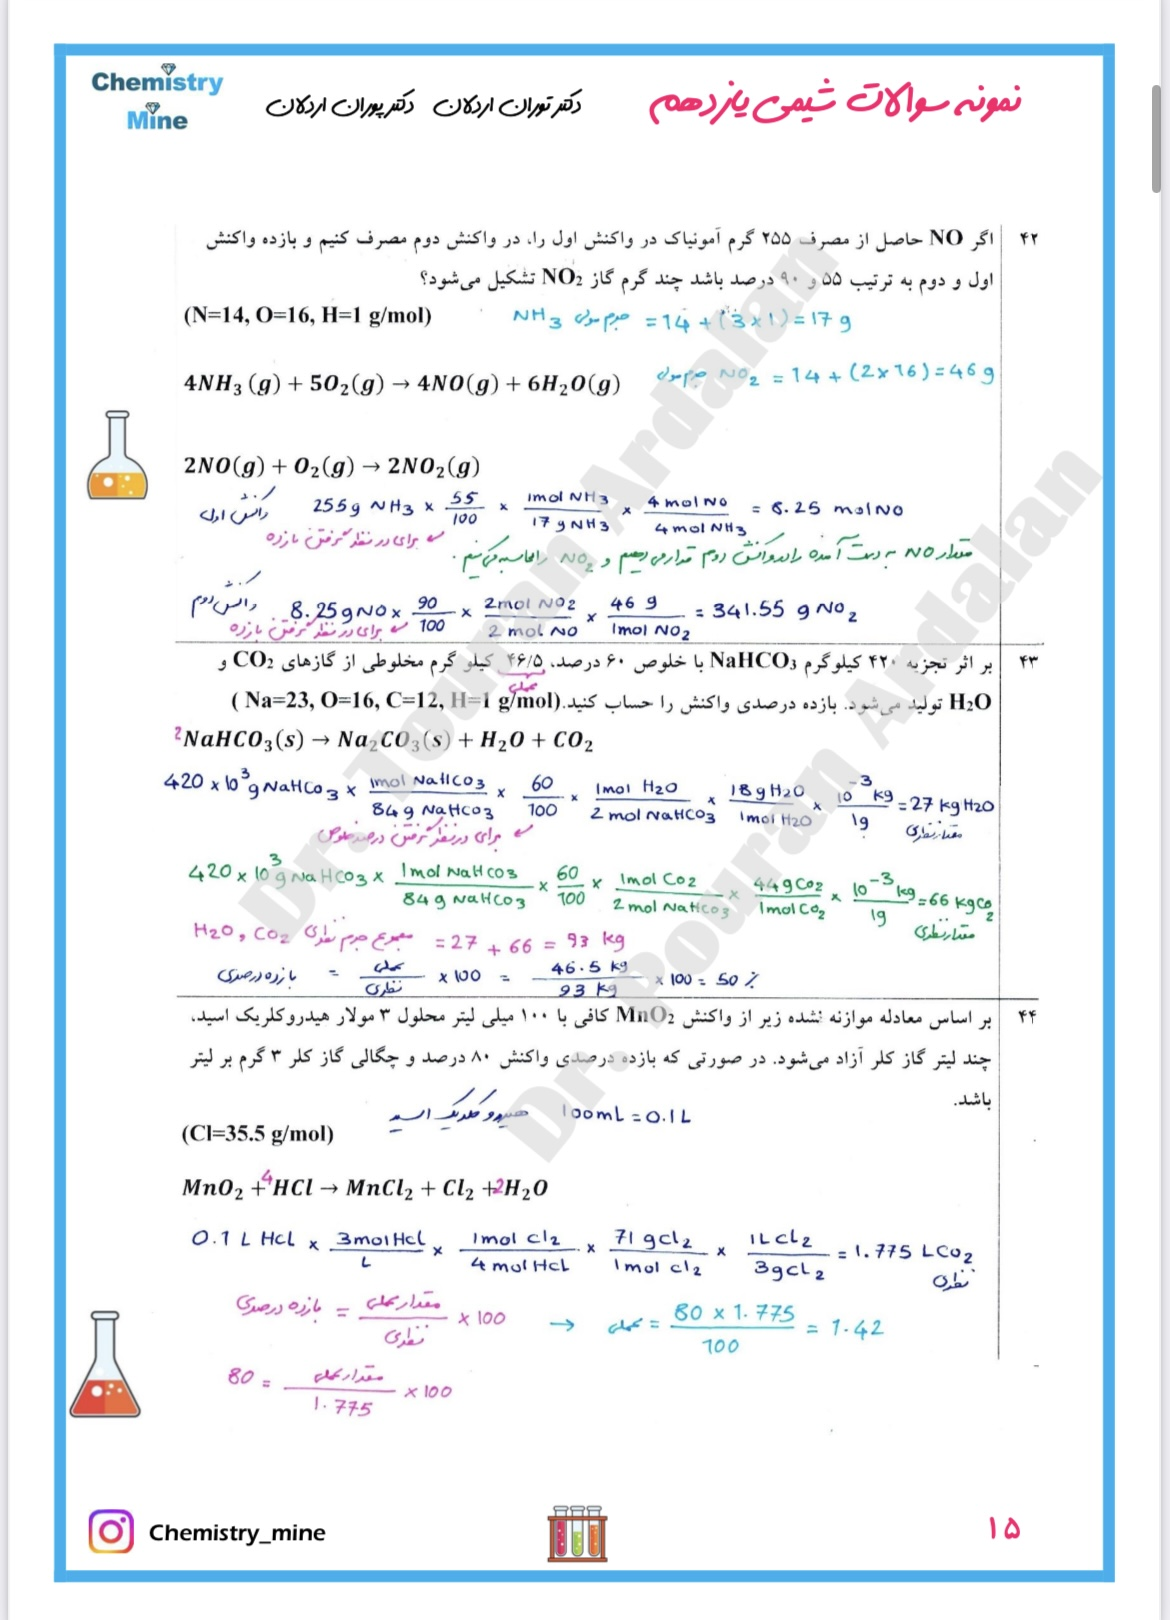 Chemistry
Mine
نمونه سوالات شیمی یازدهم
دکتر توران اردلان دکتر پوران اردلان
۴۲
اگر NO حاصل از مصرف ۲۵۵ گرم آمونیاک در واکنش اول را، در واکنش دوم مصرف کنیم و بازده واکنش
اول و دوم به ترتیب ۵۵ و ۹۰ درصد باشد چند گرم گاز NO₂ تشکیل می‌شود؟
(N=14, O=16, H=1 g/mol)
NH₃ جرم مولی = 14 + (3×1) = 17 g
4NH₃ (g) + 5O₂(g) → 4NO(g) + 6H₂O(g)
جرم مولی NO₂ = 14 + (2×16) = 46 g
2NO(g) + O₂(g) → 2NO₂(g)
واکنش اول 255 g NH₃ × 55/100 × 1mol NH₃/17 g NH₃ × 4 mol NO/4 mol NH₃ = 8.25 mol NO
برای در نظر گرفتن بازده
مقدار NO به دست آمده را در واکنش دوم قرار می دهیم و NO₂ را محاسبه می کنیم.
واکنش دوم 8.25 g NO × 90/100 × 2mol NO2/2 mol NO × 46 g/1mol NO₂ = 341.55 g NO₂
برای در نظر گرفتن بازده
۴۳
بر اثر تجزیه ۴۲۰ کیلوگرم NaHCO₃ با خلوص ۶۰ درصد، ۴۶/۵ کیلو گرم مخلوطی از گازهای CO₂ و
عملی
H₂O تولید می‌شود. بازده درصدی واکنش را حساب کنید.(Na=23, O=16, C=12, H=1 g/mol )
2NaHCO₃(s) → Na₂CO₃(s) + H₂O + CO₂
420 × 10³ g NaHCO₃ × 1mol NaHCO3/84 g NaHCO3 × 60/100 × 1mol H₂O/2 mol NaHCO3 × 18 g H₂O/1mol H₂O × 10⁻³ kg/1g = 27 kg H2O
برای در نظر گرفتن درصد خلوص
مقدار نظری
420 × 10³ g NaHCO3 × 1mol NaHCO3/84 g NaHCO3 × 60/100 × 1mol CO2/2 mol NaHCO3 × 44g CO2/1mol CO₂ × 10⁻³ kg/1g = 66 kg CO₂
مقدار نظری
H₂O, CO₂ مجموع جرم نظری = 27 + 66 = 93 kg
بازده درصدی = عملی/نظری × 100 = 46.5 kg/93 kg × 100 = 50 %
۴۴
بر اساس معادله موازنه نشده زیر از واکنش MnO₂ کافی با ۱۰۰ میلی لیتر محلول ۳ مولار هیدروکلریک اسید،
چند لیتر گاز کلر آزاد می‌شود. در صورتی که بازده درصدی واکنش ۸۰ درصد و چگالی گاز کلر ۳ گرم بر لیتر
باشد.
هیدروکلریک اسید 100mL = 0.1L
(Cl=35.5 g/mol)
MnO₂ + 4HCl → MnCl₂ + Cl₂ + 2H₂O
0.1 L HCl × 3mol HCl/L × 1mol Cl₂/4 mol HCl × 71 g Cl₂/1mol Cl₂ × 1L Cl₂/3g Cl₂ = 1.775 L CO₂
نظری
بازده درصدی = مقدار عملی/نظری × 100 → عملی = 80 × 1.775/100 = 1.42
80 = مقدار عملی/1.775 × 100
Dr. Touran Ardalan
Dr. Pouran Ardalan
Chemistry_mine
۱۵